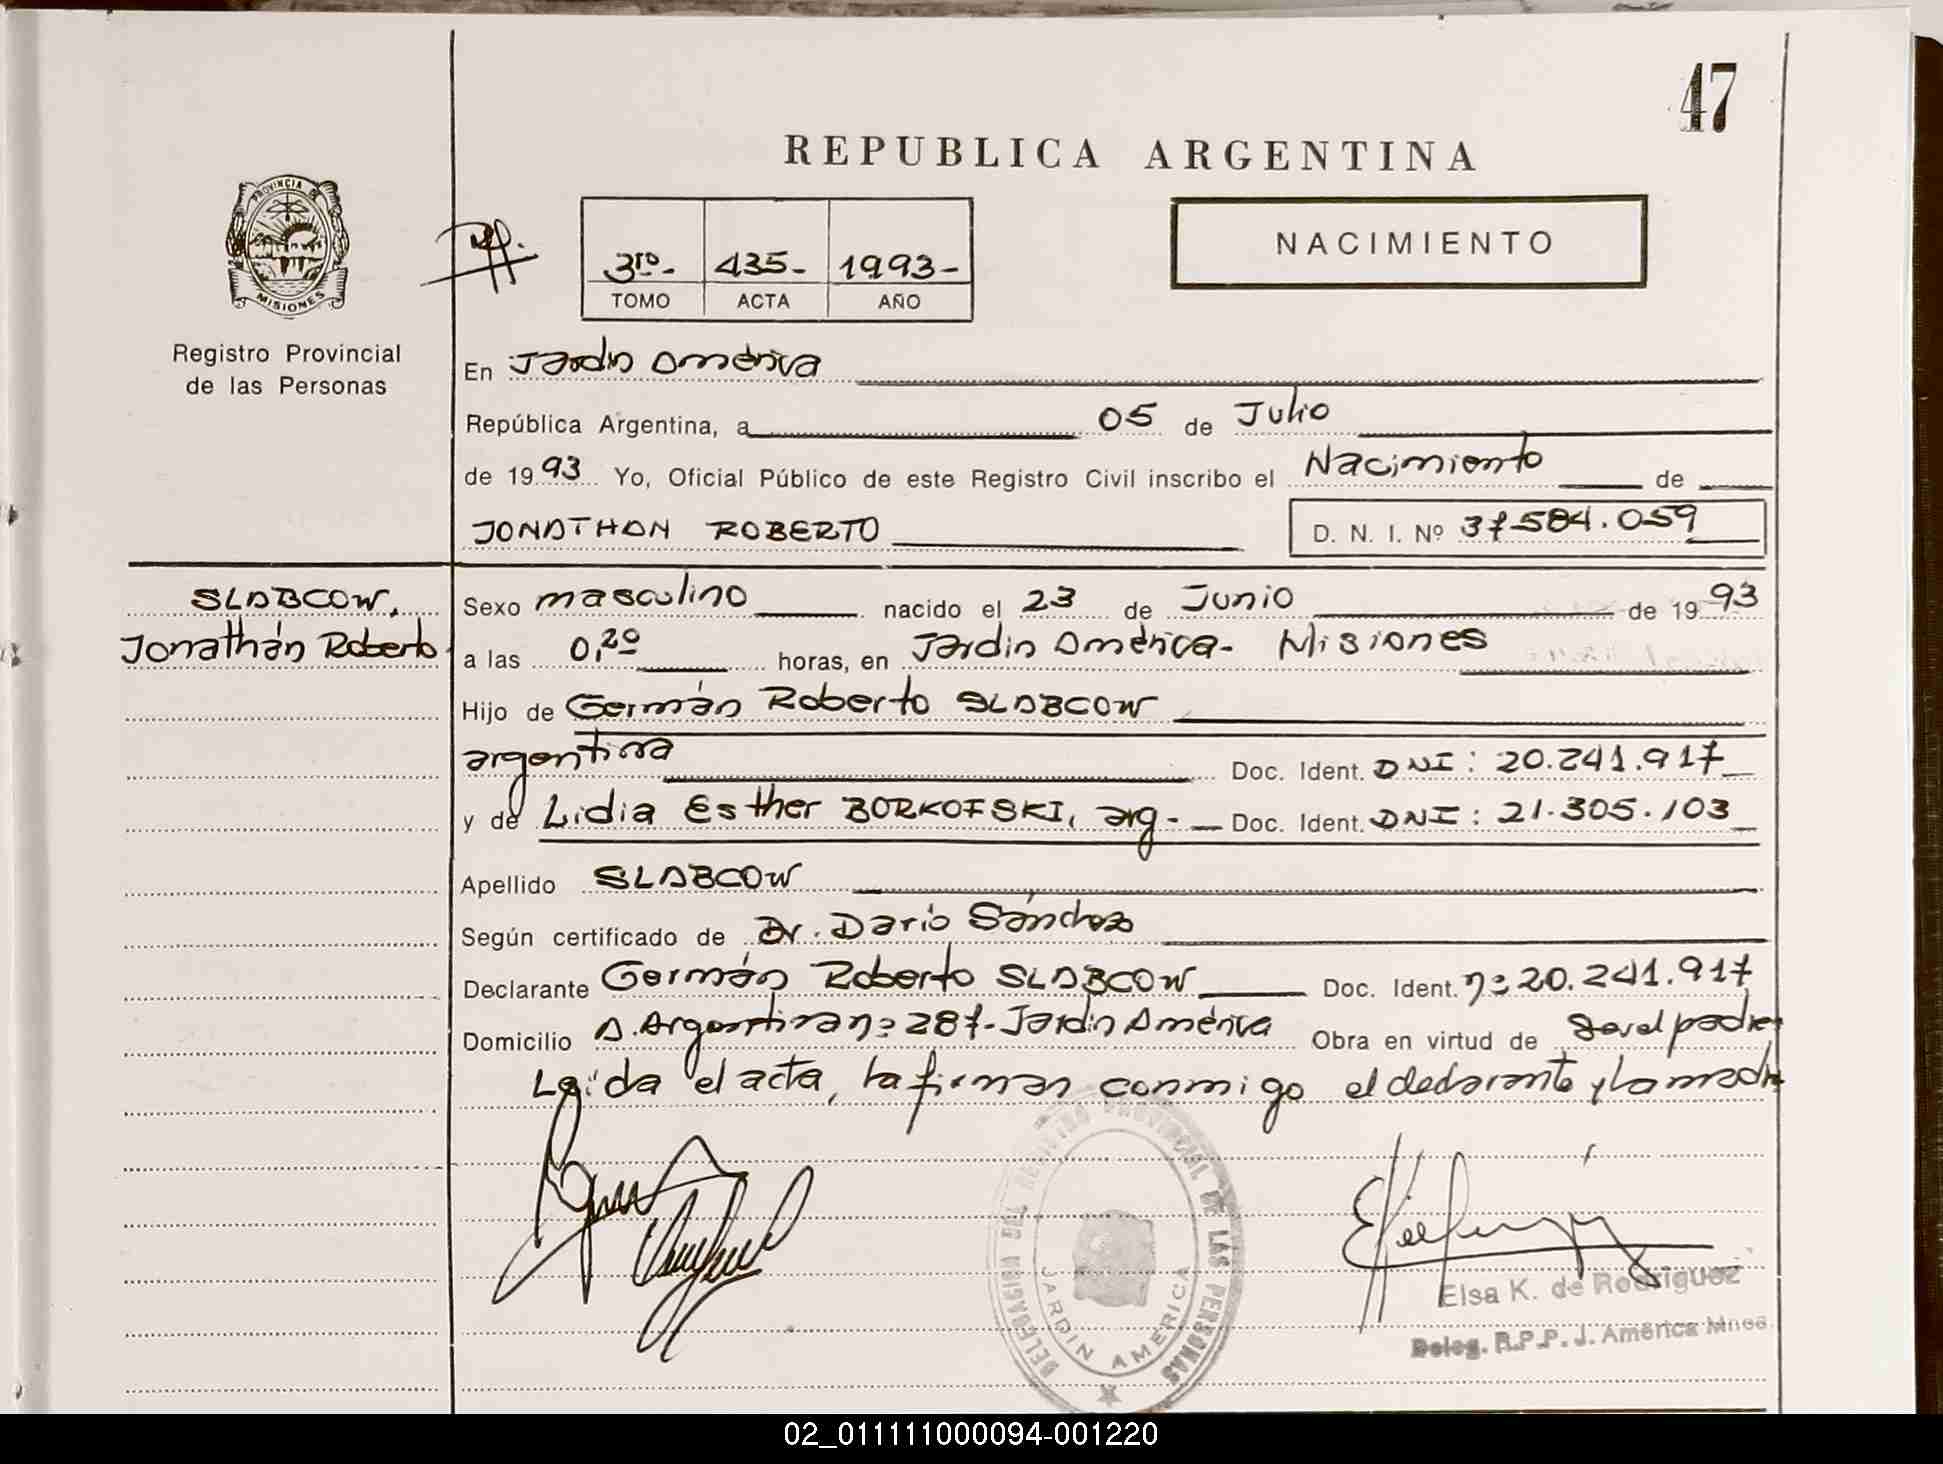 47
REPUBLICA ARGENTINA
PROVINCIA DE
MISIONES
Registro Provincial
de las Personas
3ro.- 435- 1993-
TOMO ACTA AÑO
NACIMIENTO
En Jardín América
República Argentina, a 05 de Julio
de 1993 Yo, Oficial Público de este Registro Civil inscribo el Nacimiento de
JONATHAN ROBERTO D. N. I. Nº 37584.059
SLABCOW,
Jonathán Roberto
Sexo masculino nacido el 23 de Junio de 1993
a las 0,20 horas, en Jardín América- Misiones
Hijo de Germán Roberto SLABCOW
argentina Doc. Ident. DNI: 20.241.917
y de Lidia Esther BORKOFSKI, arg.- Doc. Ident. DNI: 21.305.103
Apellido SLABCOW
Según certificado de Dr. Darío Sánchez
Declarante Germán Roberto SLABCOW Doc. Ident. nº 20.241.917
Domicilio A. Argentina nº 287- Jardín América Obra en virtud de ser el padre
Leída el acta, la firman conmigo el declarante y la madre
DELEGACION DEL REGISTRO PROVINCIAL DE LAS PERSONAS
JARDIN AMERICA
Elsa K. de Rodriguez
Deleg. R.P.P. J. América Mnes.
02_011111000094-001220